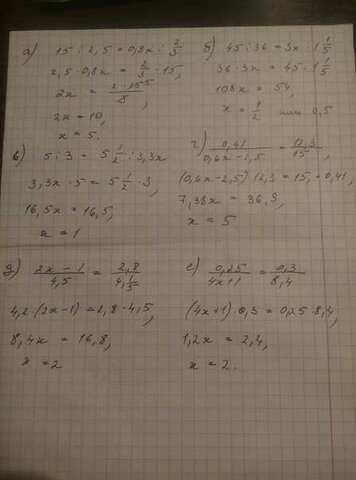 а) 15 : 2,5 = 0,8x : 2/3
2,5 · 0,8x = 2/3 · 15,
2x = 2 · 15⁵ / 3,
2x = 10,
x = 5.
б) 45 : 36 = 3x · 1 1/5
36 · 3x = 45 · 1 1/5
108x = 54,
x = 1/2 или 0,5
в) 5 : 3 = 5 1/2 : 3,3x
3,3x · 5 = 5 1/2 · 3,
16,5x = 16,5,
x = 1
г) 0,41 / 0,6x - 2,5 = 12,3 / 15,
(0,6x - 2,5) 12,3 = 15 · 0,41,
7,38x = 36,9,
x = 5
д) 2x - 1 / 4,5 = 2,8 / 4 1/5
4,2 · (2x - 1) = 2,8 · 4,5,
8,4x = 16,8,
x = 2
е) 0,25 / 4x + 1 = 0,3 / 8,4
(4x + 1) · 0,3 = 0,25 · 8,4,
1,2x = 2,4,
x = 2.